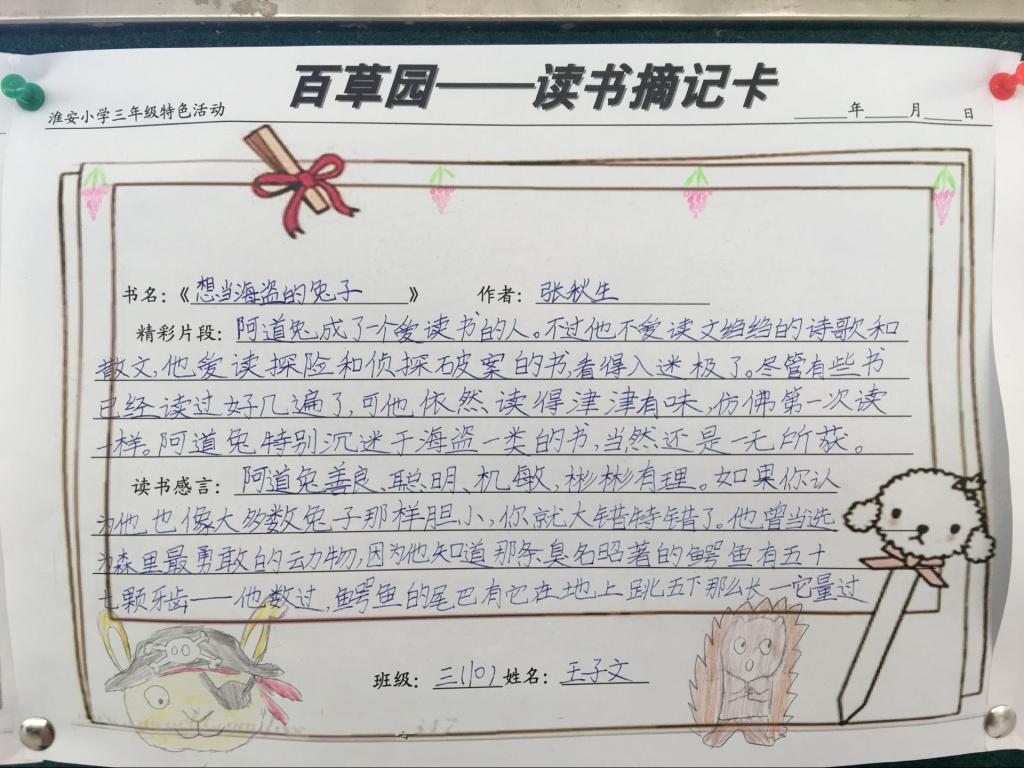 百草园——读书摘记卡
淮安小学三年级特色活动 ____年____月____日
书名：《想当海盗的兔子》 作者：张秋生
精彩片段：阿道兔成了一个爱读书的人。不过他不爱读文绉绉的诗歌和
散文，他爱读探险和侦探破案的书，看得入迷极了。尽管有些书
已经读过好几遍了，可他依然读得津津有味，仿佛第一次读
一样。阿道兔特别沉迷于海盗一类的书，当然还是一无所获。
读书感言：阿道兔善良、聪明、机敏，彬彬有理。如果你认
为他也像大多数兔子那样胆小，你就大错特错了。他曾当选
为森里最勇敢的动物，因为他知道那条臭名昭著的鳄鱼有五十
七颗牙齿——他数过，鳄鱼的尾巴有它在地上跳五下那么长—它量过
班级：三(10) 姓名：王子文